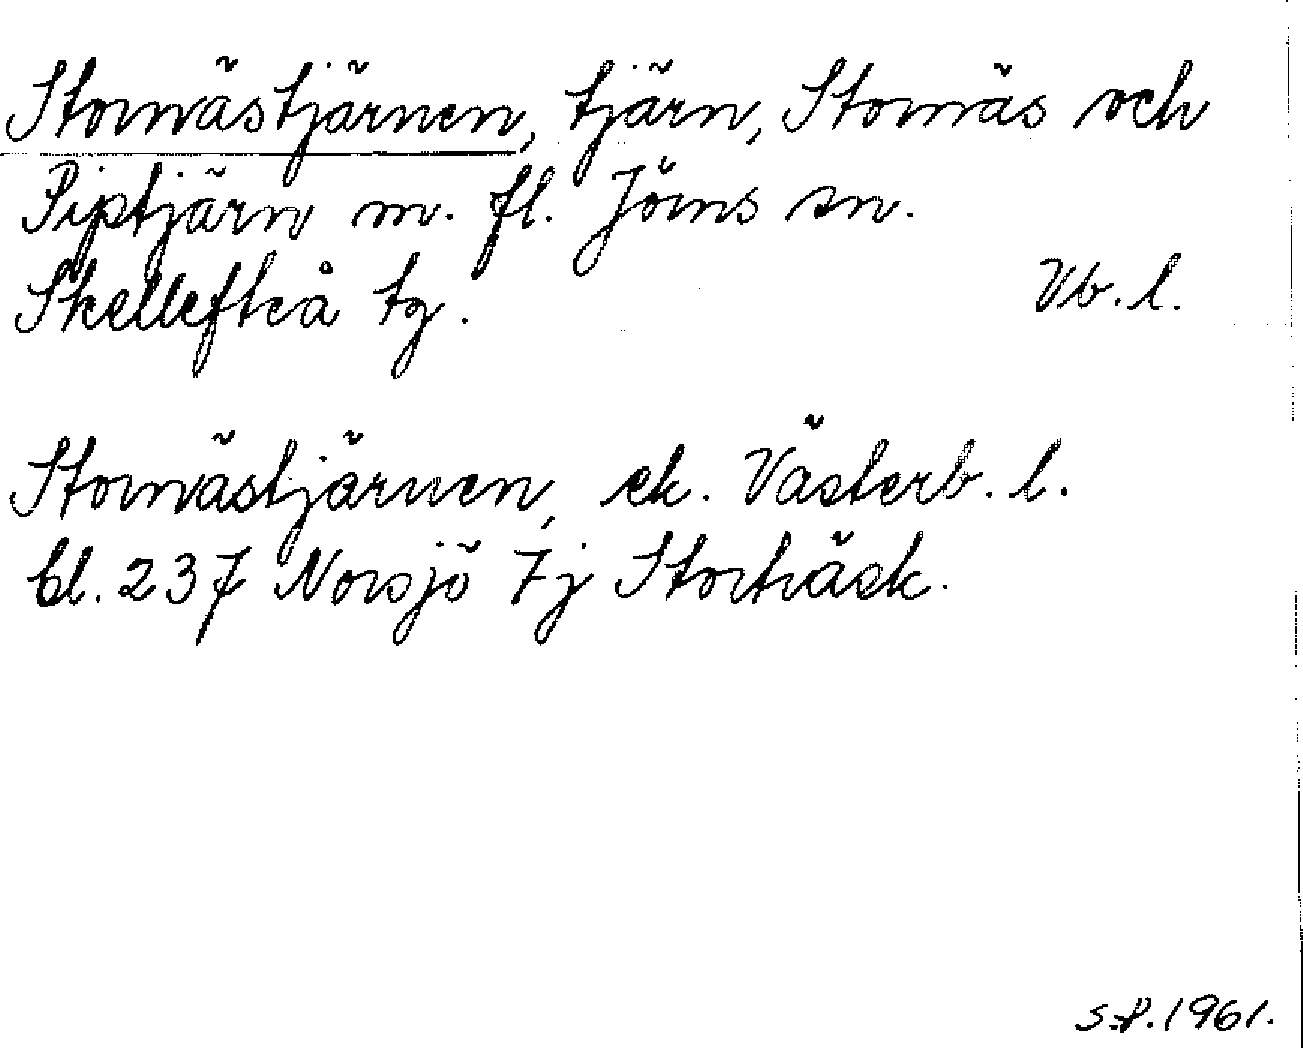 Stornästjärnen, tjärn, Stornäs och
Piptjärn m. fl. Jörns sn.
Skellefteå tg.
Vb. l.
Stornästjärnen, ek. Västerb. l.
bl. 237 Norsjö 7j Storträsk.
S.P. 1961.